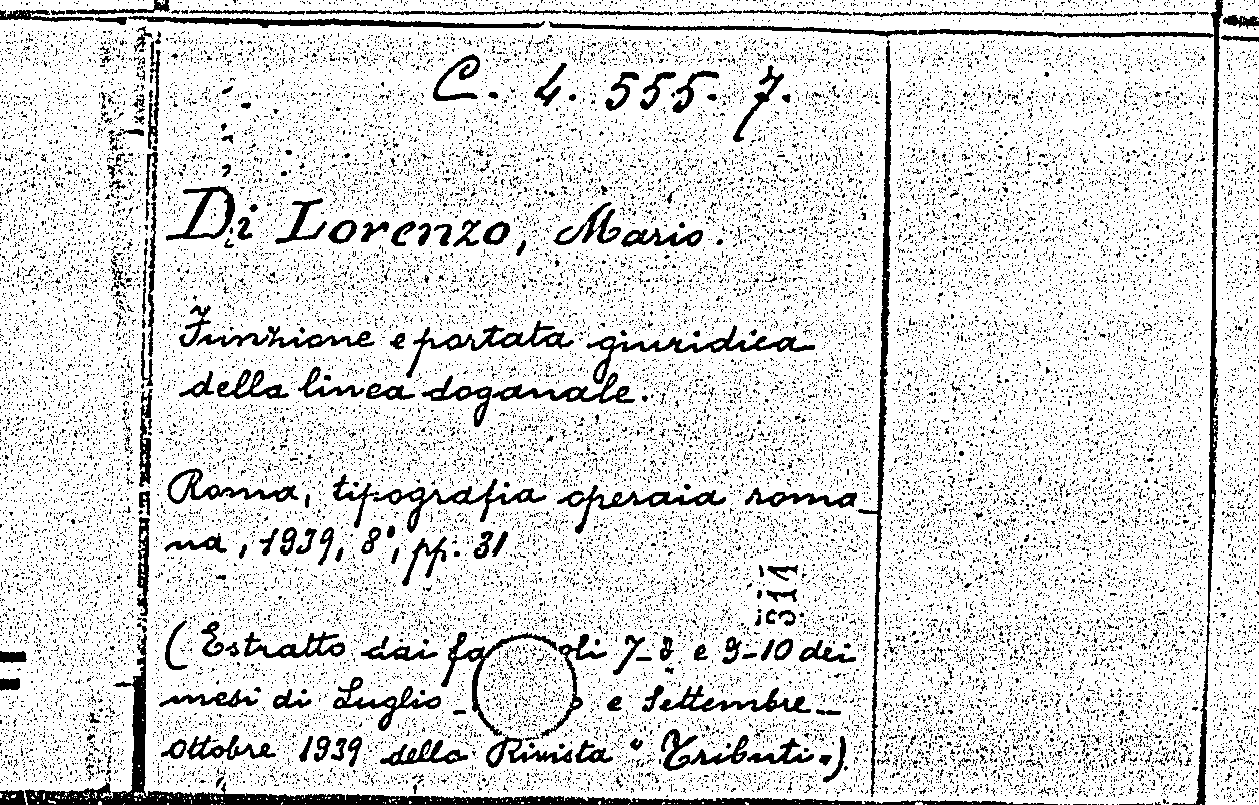 C. 4. 555. 7.
Di Lorenzo, Mario.
Funzione e portata giuridica
della linea doganale.
Roma, tipografia operaia roma_
na, 1939, 8°, pp. 31
311
(Estratto dai 7-8 e 9-10 dei
mesi di Luglio - e Settembre_
ottobre 1939 della Rivista "Tributi")